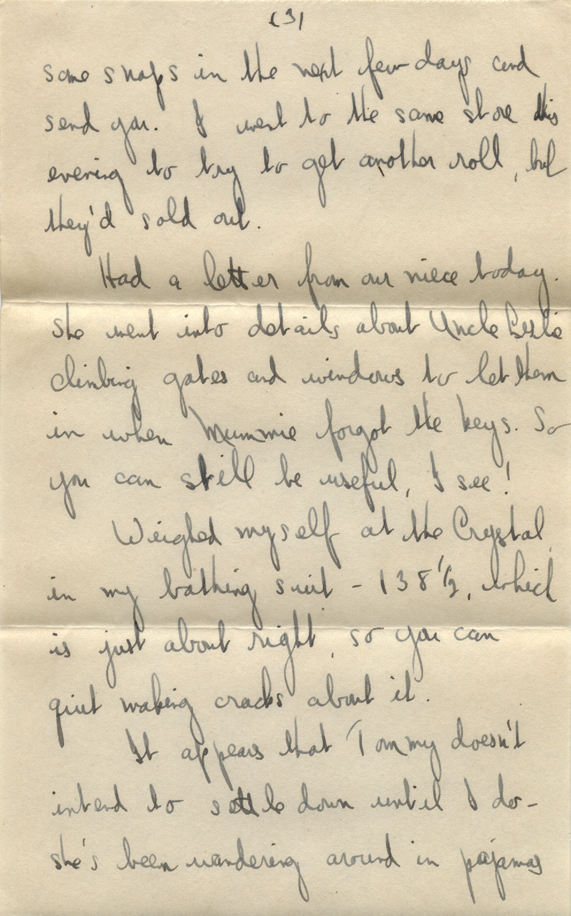 (3)
some snaps in the next few days and
send you. I went to the same store this
evening to try to get another roll, but
they'd sold out.
Had a letter from our niece today.
She went into details about Uncle Leslie
climbing gates and windows to let them
in when Mummie forgot the keys. So
you can still be useful, I see!
Weighed myself at the Crystal
in my bathing suit - 138 1/2, which
is just about right, so you can
quiet making cracks about it.
It appears that Tommy doesn't
intend to settle down until I do -
she's been wandering around in pajamas